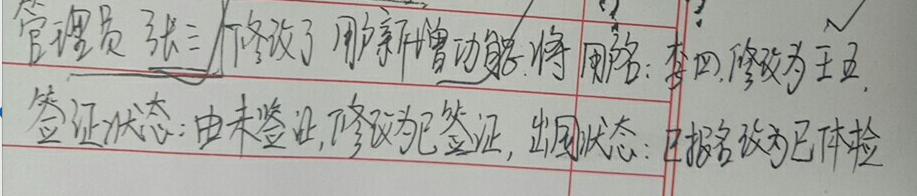 管理员 张三 修改了 用户新增功能.将 用户名:李四.修改为王五.
签证状态:由未签证,修改为已签证,出国状态:已报名改为已体检